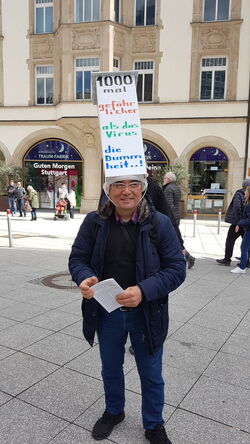 1000
mal
gefähr
licher
als das
Virus
die
Dumm
heit..!
TRAUM-FABRIK
Guten Morgen
Stuttgart
TRAUM-FABRIK